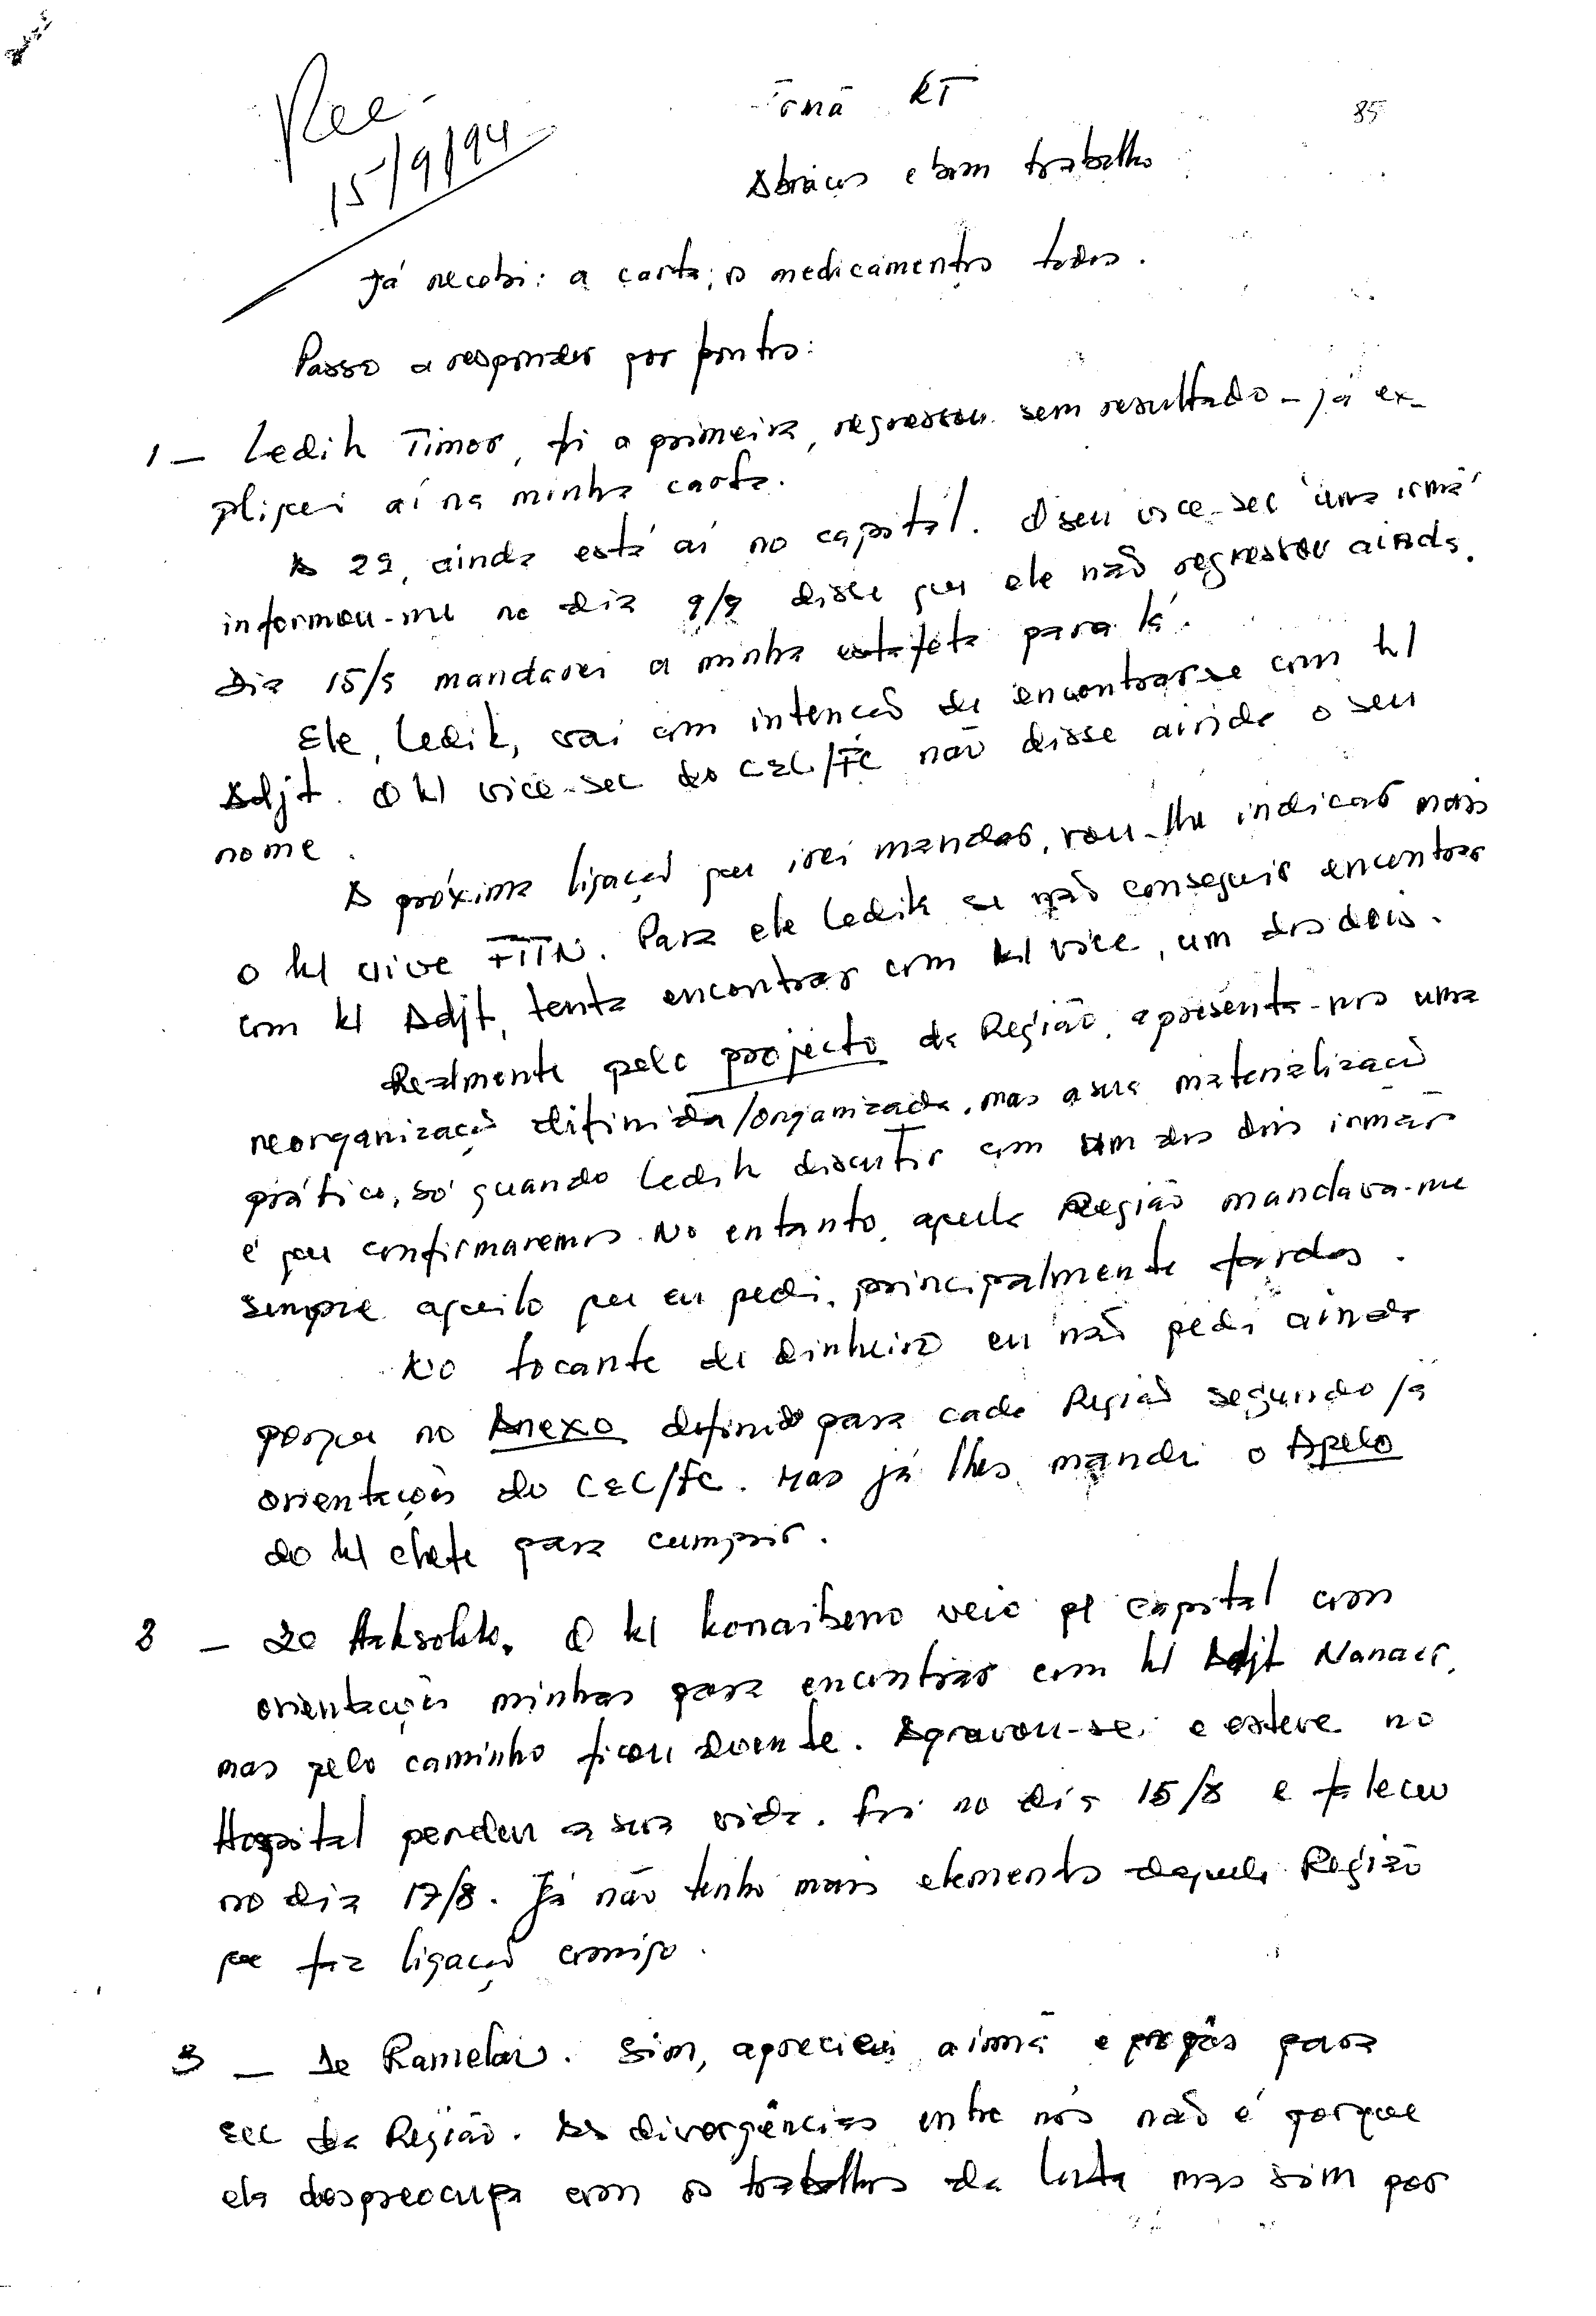 Rec -
15/9/94
Irmã KT
85
Abraços e bom trabalho
Já recebi: a carta; os medicamentos todos.
Passo a responder por pontos:
1 – Ledik Timor, foi a primeira, regressou sem resultado – já ex-
pliquei aí na minha carta.
A 2ª, ainda está aí no capital. O seu vice-sec "uma irmã"
informou-me no dia 9/9 disse que ele não regressou ainda.
Dia 15/9 mandarei a minha estafeta para lá.
Ele, Ledik, vai com intenção de encontrar-se com kl
Adjt. O kl vice-sec do CEL/FC não disse ainda o seu
nome.
A próxima ligação que irei mandar, vou-lhe indicar mais
o kl vive FITN. Para ele Ledik se não conseguir encontrar
com kl Adjt, tenta encontrar com kl vice, um dos dois.
Realmente pelo projecto da Região, apresenta-nos uma
reorganização difinida/organizada, mas a sua materialização
prática, só quando Ledik discutir com um dos dois irmãos
é que confirmaremos. No entanto, aquela Região mandava-me
sempre aquilo que eu pedi, principalmente fardas.
No tocante de dinheiro eu não pedi ainda
porque no Anexo definido para cada Região segundo já
orientações do CEC/FC. Mas já lhes mandei o Apelo
do kl chefe para cumprir.
2 – De Haksolok. O kl konaibeno veio pl capital com
orientações minhas para encontrar com kl Adjt Nanaer,
mas pelo caminho ficou doente. Agravou-se e esteve no
Hospital perdeu a sua vida. Foi no dia 15/8 e faleceu
no dia 17/8. Já não tenho mais elementos daquela Região
que faz ligação comigo.
3 – De Ramelau. Sim, apreciei a irmã e propôs para
sec da Região. As divergências entre nós não é porque
ela despreocupa com os trabalhos da luta mas sim por